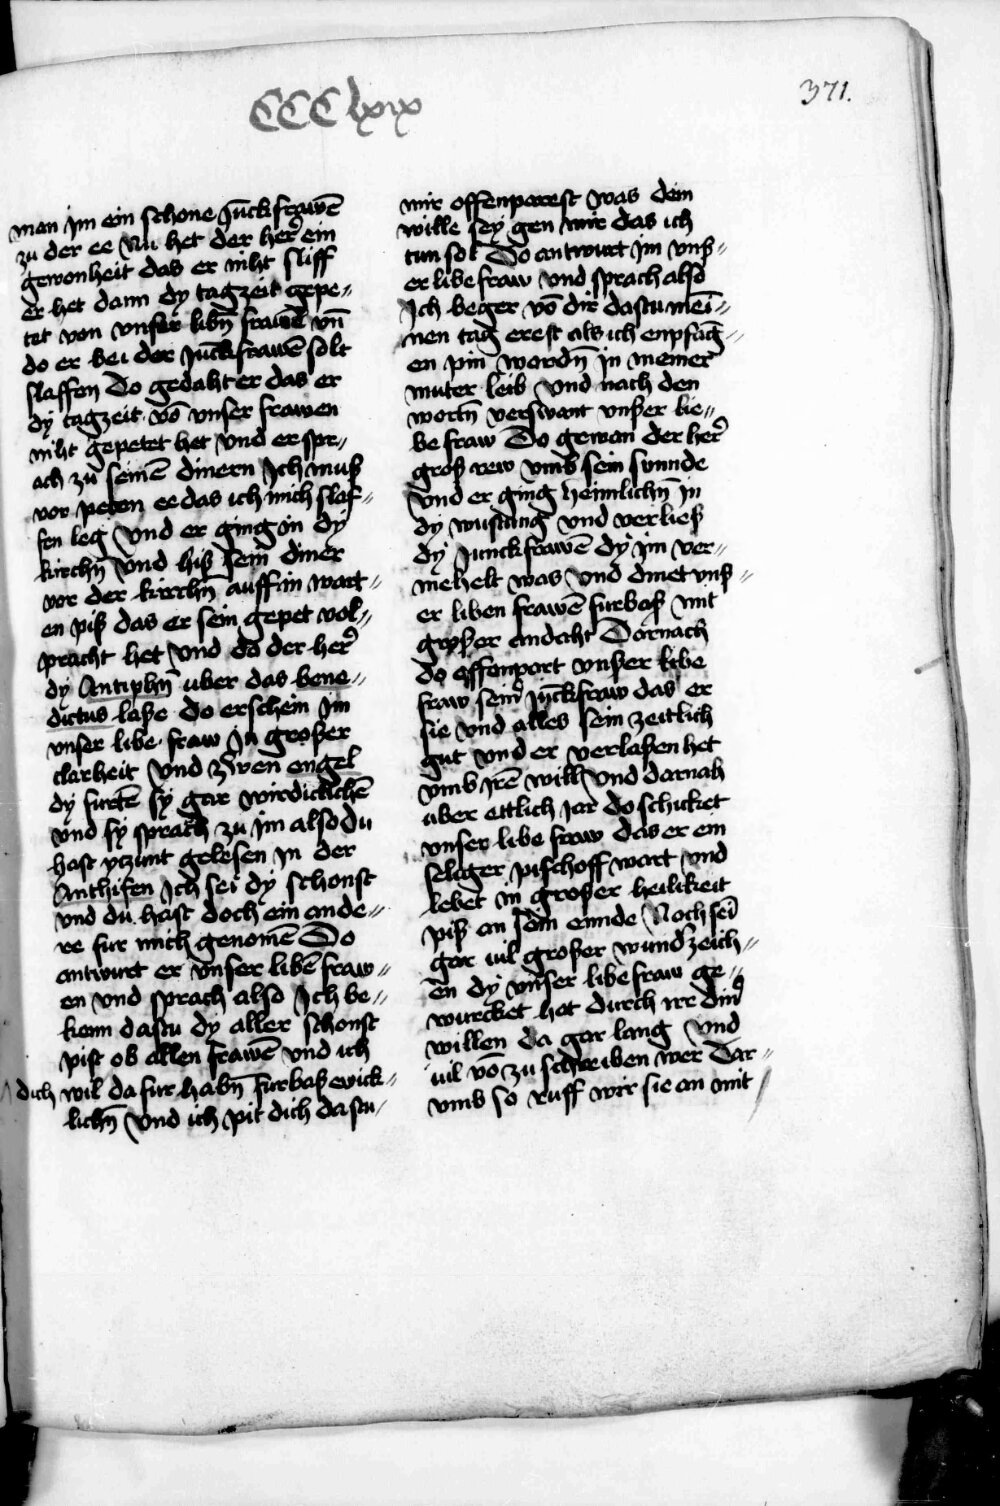 CCClxix
371.
man jm ein schone Junckfrawē
zu der ee Nu het der her̄ ein
gewonheit das er niht sliff
er het dann dy tagzeit gepe〃
tet von unser libn̄ frawē vn̄
do er bei der Juckfrawē solt
slaffen Do gedaht er das er
dy tagzeit vō vnser frawen
niht gepetet het Vnd er spr〃
ach zu seinē dinern Ich muß
vor peten ee das ich mich slaf〃
fen leg Vnd er ging in dy
kirchn̄ Vnd hiß sein diner
vor der kirchn̄ auff im wart〃
en piß das er sein gepet vol〃
pracht het Vnd do der her̄
dy Antiphn̄ uber das bene〃
dictus laße do erschein jm
vnser libe fraw Jn großer
clarheit Vnd zwen engel
dy furtē sy gar wirdicklichē
Vnd sy sprach zu jm also du
hast yczunt gelesen Jn der
Anthifen Ich sei dy schonst
vnd du hast doch ein ande〃
re fur mich genomē Do
antwurt er vnser libē fraw〃
en vnd sprach also Ich be〃
kenn dastu dy aller schonst
pist ob allen frawē vnd ich
dich wil da fur habn̄ furbaß ewick〃
lichn̄ Vnd ich pit dich dastu
mir offenparest was dein
wille sey gen mir das ich
tun sol Do antwurt jm vnß〃
er libe fraw vnd sprach also
Ich beger vō dir dastu meī〃
nen tag erest als ich enpfāg〃
en pin wordn̄ jn meiner
muter leib Vnd nach den
wortn̄ verswant vnßer lie〃
be fraw Do gewan der her̄
groß rew vmb sein sunnde
Vnd er ging heimlichn̄ in
dy wustung vnd verließ
dy junckfrawē dy im ver〃
mehelt was Vnd dinet vnß〃
er liben frawē furbaß mit
großer andaht Dornach
do offenport vnßer libe
fraw seinr̄ jūckfraw das er
sie vnd alles sein zeitlich
gut vnd er verlaßen het
vmb jrē will Vnd darnah
uber ettlich jar do schicket
vnser libe fraw das er ein
seliger pischoff wart vnd
lebet in großer heilikeit
piß an sein ennde Noch sei
gar uil großer wund̾zeich〃
en dy vnser libe fraw ge〃
wurcket hat durch irr din̾
willen da gar lang vnd
uil vō zu schreiben wer Dar〃
vmb so ruff wir sie an mit